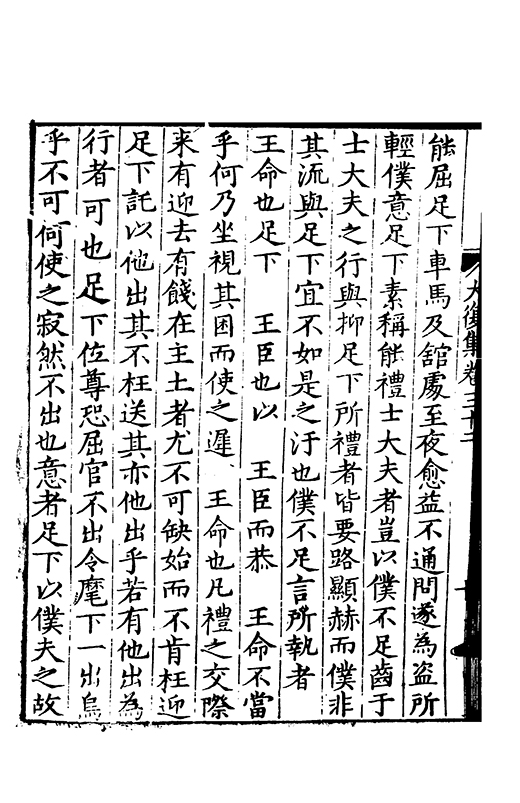 能屈足下車馬及舘處至夜愈益不通問遂為盗所
輕僕意足下素稱能禮士大夫者豈以僕不足齒于
士大夫之行與抑足下所禮者皆要路顯赫而僕非
其流與足下宜不如是之汙也僕不足言所執者
王命也足下　王臣也以　王臣而恭　王命不當
乎何乃坐視其困而使之遲　王命也凡禮之交際
来有迎去有餞在主土者尤不可缺始而不肯枉迎
足下託以他出其不枉送其亦他出乎若有他出為
行者可也足下位尊恐屈官不出令麾下一出烏
乎不可何使之寂然不出也意者足下以僕夫之故
大復集卷三十二